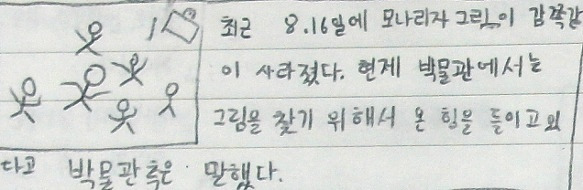 최근 8.16일에 모나리자 그림이 감쪽같
이 사라졌다. 현제 박물관에서는
그림을 찾기 위해서 온 힘을 들이고 있
다고 박물관측은 말했다.